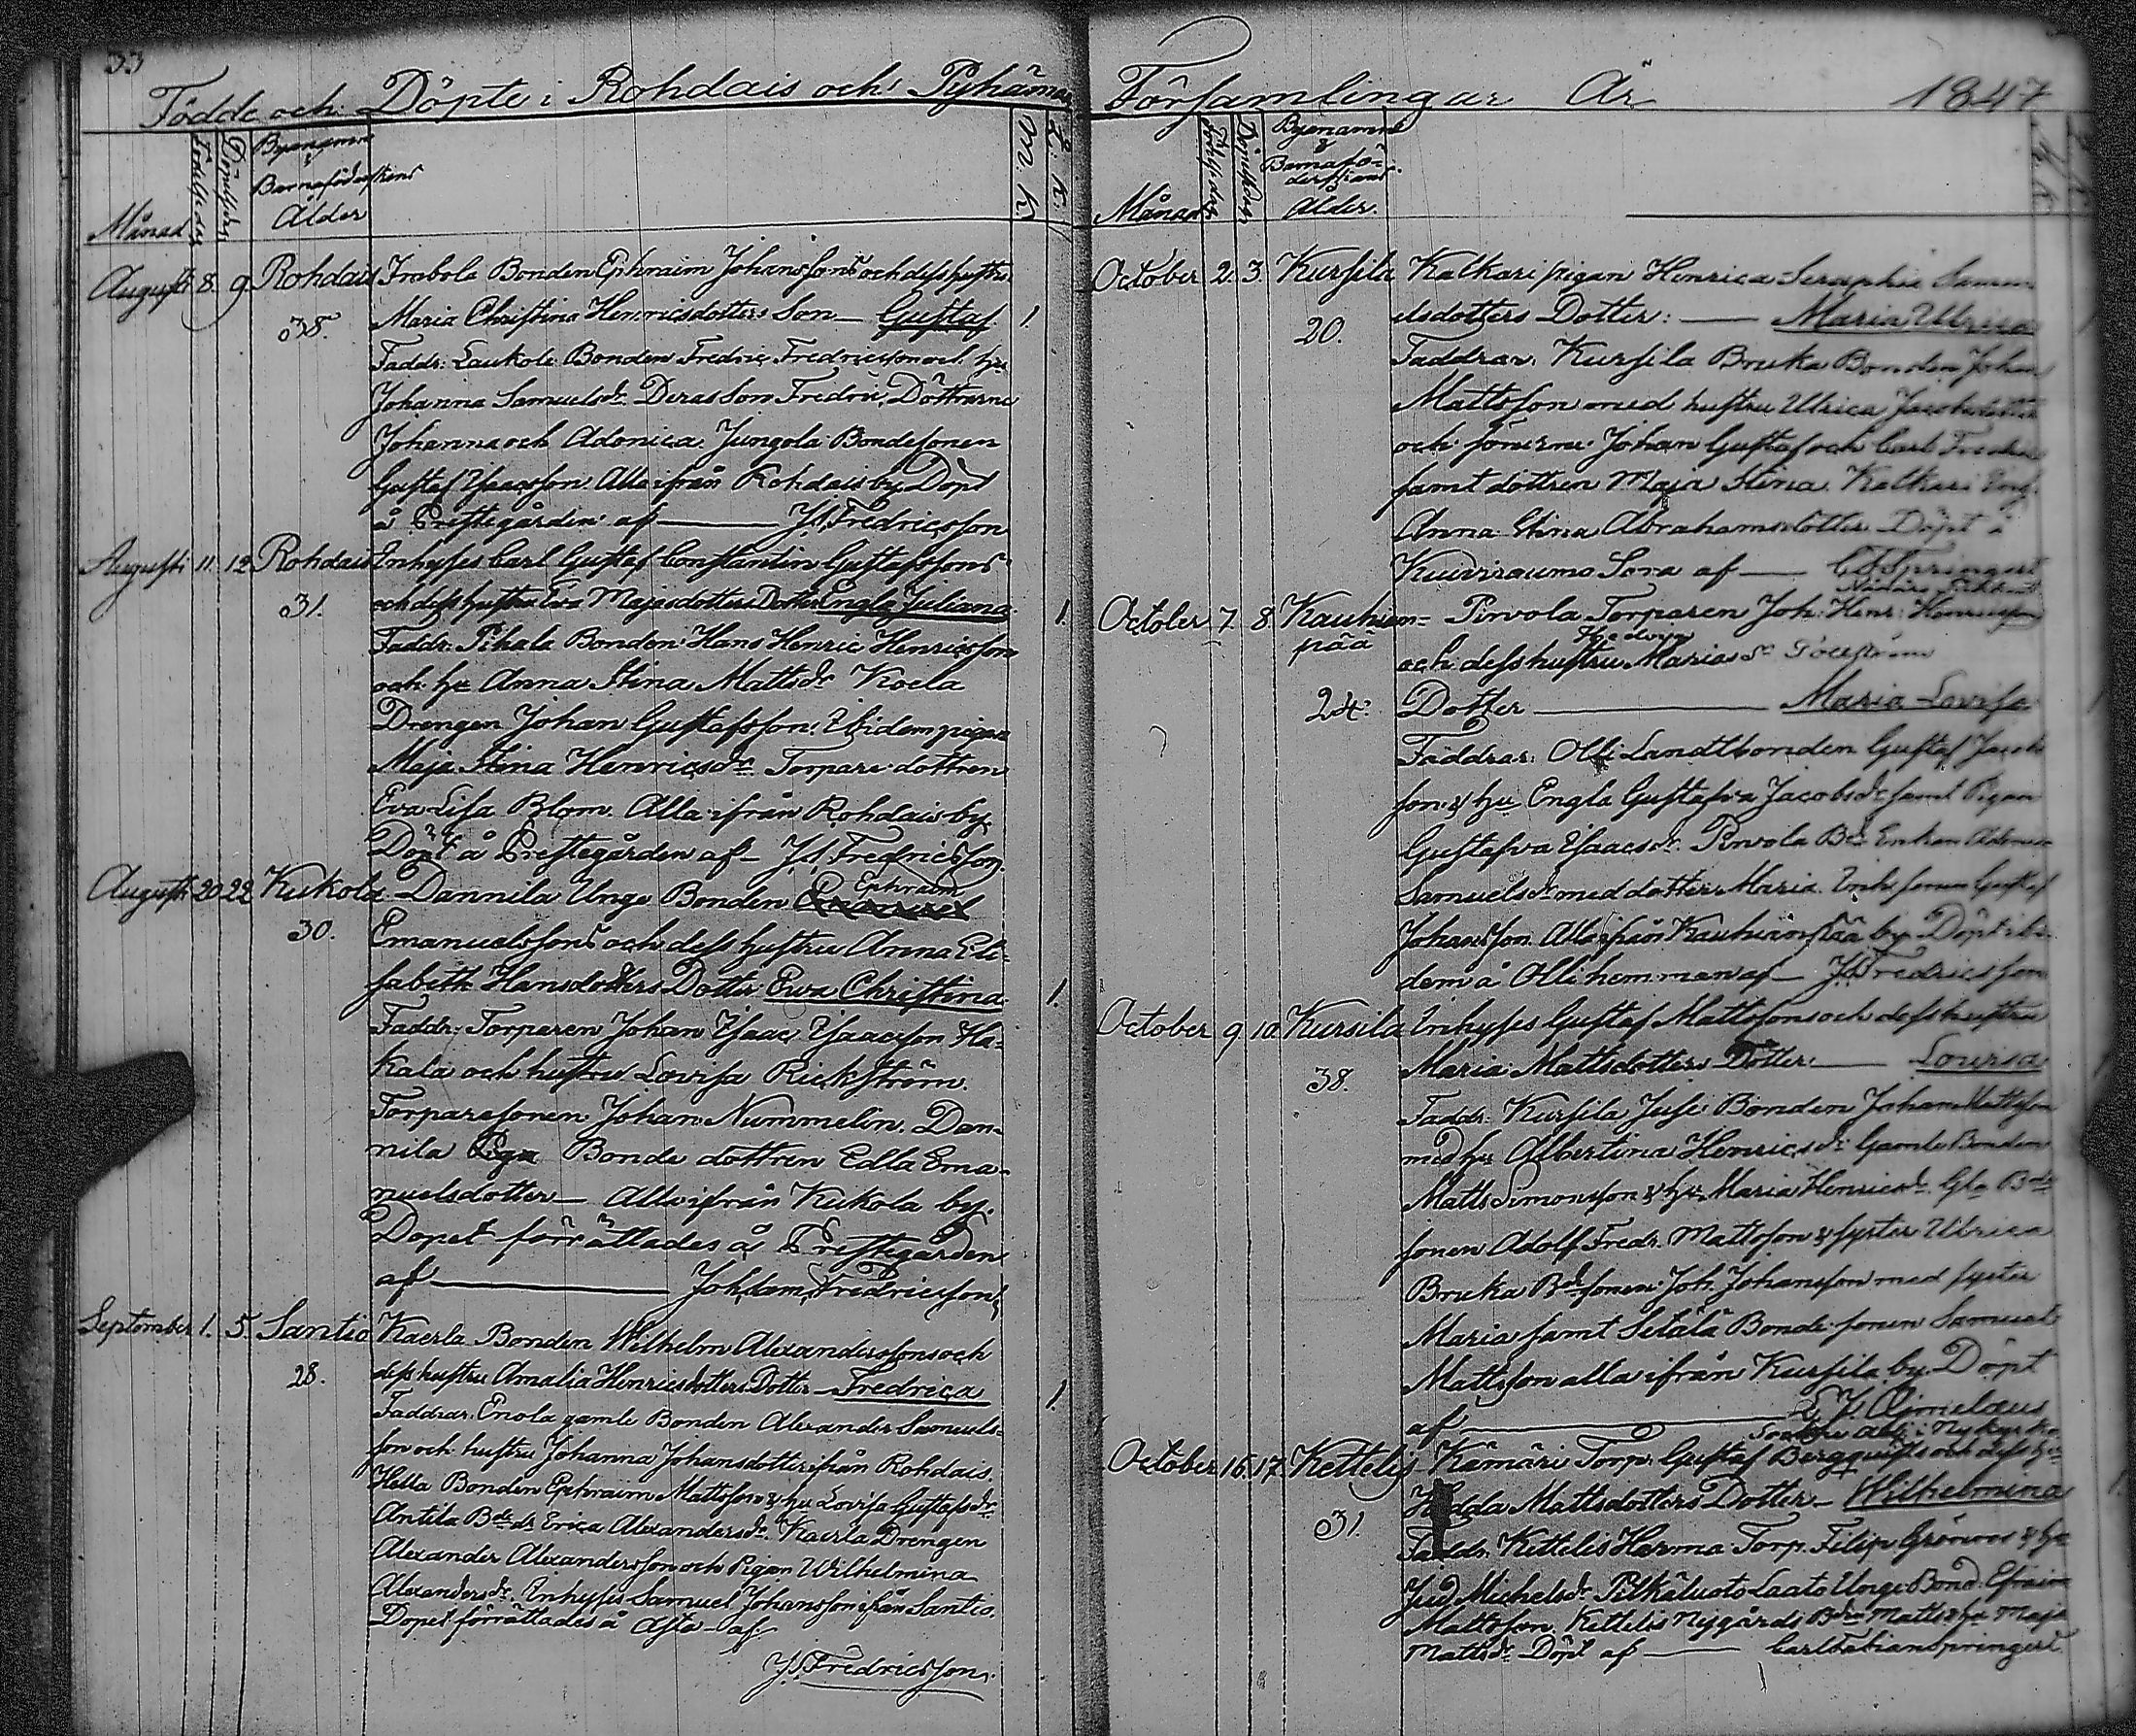 33
Födde och Döpte i Rohdais och Pyhäma
Månad
Födelsedag
Döpelsedag
Byenamn & Barnaföderskans Ålder
M. K.
Q. K.
Augusti 8. 9 Rohdais Irabola Bonden Ephraim Johanssons och dess hustru
38. Maria Christina Henricsdotters Son — Gustaf 1
Faddr: Laukola Bonden Fredric Fredricsson och hu
Johanna Samuelsdr. Deras Son Fredric, Döttrarne
Johanna och Adonica. Jungola Bondesonen
Gustaf Isaacsson. Alla ifrån Rohdais by Döpt
å Prestegården af — J. A. Fredricsson
Augusti 11. 12 Rohdais Inhyses Carl Gustaf Constantin Gustafssons
31. och dess hustru Eva Majasdotters Dotter Engla Juliana 1.
Faddr. Pihala Bonden Hans Henric Henricsson
och hu Anna Stina Mattsdr Koela
Drengen Johan Gustafsson. Ibidem pigan
Maja Stina Henricsdr Torpare dottren
Eva Lisa Blom. Alla ifrån Rohdais by
Döpt å Prestegården af — J. A. Fredricsson.
Augusti 20 22 Kukola Dannila Unge Bonden Ephraim
30. Emanuelssons och dess hustru Anna Eli-
sabeth Hansdotters Dotter Eva Christina 1.
Faddr: Torparen Johan Isaac Isaacsson Ha-
kala och hustru Lovisa Rickström.
Torparesonen Johan Nummelin. Dan-
nila Bonde dottren Edla Ema-
nuelsdotter — Alla ifrån Kukola by.
Dopet förrättades å Prestegården
af — Joh. Adam Fredricsson
September 1. 5. Santio Kaerla Bonden Wilhelm Alexanderssons och
28. dess hustru Amalia Henricsdotters Dotter — Fredrica 1
Faddrar. Enola gamle Bonden Alexander Samuels-
son och hustru Johanna Johansdotter ifrån Rohdais.
Hella Bonden Ephraim Mattsson & hu Lovisa Gustafsdr
Antila Bde dr Erica Alexandersdr. Kaerla Drengen
Alexander Alexandersson och Pigan Wilhelmina
Alexandersdr. Inhyses Samuel Johansson ifrån Santio.
Dopet förrättades å Asta — af
J. A. Fredricsson.
Församlingar År 1847
Månad
Födelsedag
Döpelsedag
Byenamn & Barnafö-
derskans
Ålder.
October 2. 3. Kursila Kalkari pigan Henrica Seraphia Samu-
20. elsdotters Dotter: — Maria Ulrica
Faddrar. Kursila Bruka Bonden Johan
Mattsson med hustru Ulrica Jacobsdotter
och sönerne Johan Gustaf och Carl Fredric
samt dottren Maja Stina. Kalkari
Anna Stina Abrahamsdotter Döpt i
Kuivrauma Sora af — C F Springert
October 7 8 Kauhian- Pirvola Torparen Joh. Henr: Henricsson
pää och dess hustru Hedvig Maria
24. Dotter — Maria Lovisa
Faddrar: Olli Landtbonden Gustaf Jacobs
son & hu Engla Gustafva Jacobsdr samt Pigan
Gustafva Isaacsdr. Pirvola Bde Enkan
Samuelsdr med dotter Maria. Inh. sonen Gustaf
Johansson. Alla ifrån Kauhianpää by Döpt ibi-
dem å Olli hemman af — J. A. Fredricsson
October 9 10. Kursila Inhyses Gustaf Mattssons och dess hustru
38. Maria Mattsdotters Dotter — Lovisa
Faddr. Kursila Juse Bonden Johan Mattsson
med hu Albertina Henricsdr Gamle Bonden
Matts Simonsson & hu Maria Henricsdr. Gla Bde
sonen Adolf Fredr. Mattsson & syster Ulrica
Bruka Bde sonen Joh. Johansson med syster
Maria samt Setälä Bonde sonen Samuel
Mattsson alla ifrån Kursila by Döpt
af — J. Aimelaeus
October 16 17. Kettelis Kämäri Torp. Gustaf Bergquists och dess hu
31. Hedda Mattsdotters Dotter — Wilhelmina 1
Faddr. Kettelis Harma Torp. Filip Grönroos & hu
Jud. Michelsdr Pitkäluoto Laato Unge Bond. Efraim
Mattsson. Kettelis Nygårds Bdn Matts & hu Maja
Mattsdr. Döpt af — Carl Fabian Springert.